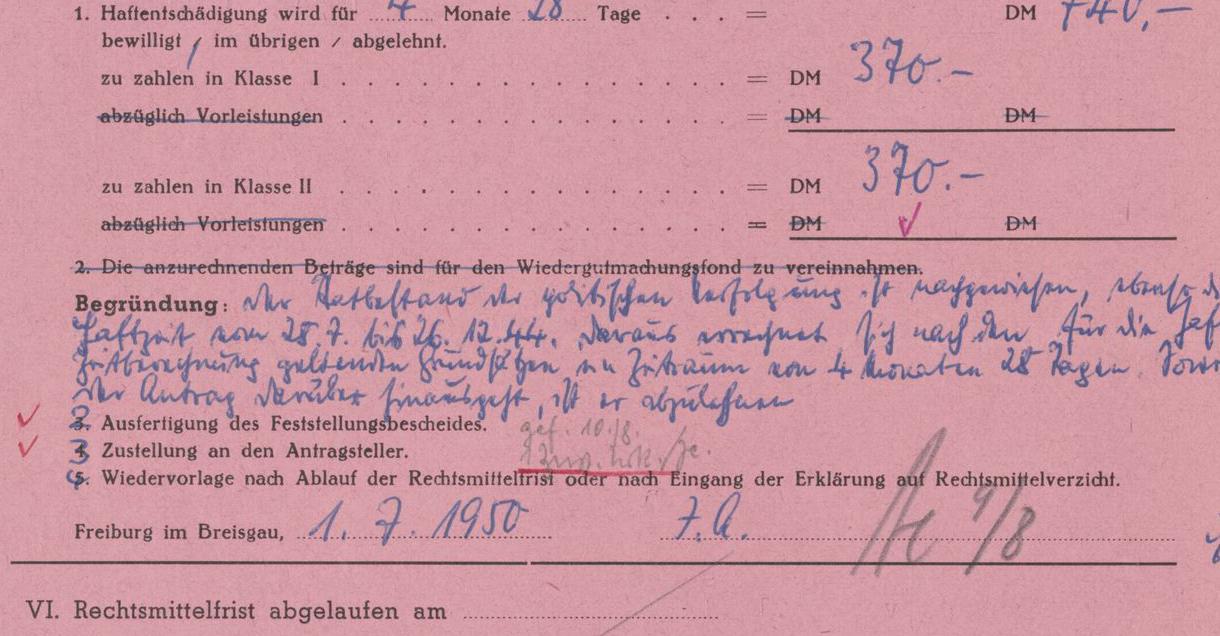 1. Haftentschädigung wird für 4 Monate 28 Tage . . . = DM 740,—
bewilligt / im übrigen / abgelehnt.
zu zahlen in Klasse I . . . . . . . . . . . . . . = DM 370.—
abzüglich Vorleistungen . . . . . . . . . . . . . . = DM DM
zu zahlen in Klasse II . . . . . . . . . . . . . . = DM 370.—
abzüglich Vorleistungen . . . . . . . . . . . . . . = DM DM
2. Die anzurechnenden Beträge sind für den Wiedergutmachungsfond zu vereinnahmen.
Begründung: Der Tatbestand der politischen Verfolgung ist nachgewiesen, ebenso
Haftzeit vom 28.7. bis 26.12.44. Daraus errechnet sich nach den für die
geltenden Grundsätzen ein Zeitraum von 4 Monaten 28 Tagen.
der Antrag darüber hinausgeht, ist er abzulehnen
2. Ausfertigung des Feststellungsbescheides. gef. 10./8.
3 Zustellung an den Antragsteller.
4. Wiedervorlage nach Ablauf der Rechtsmittelfrist oder nach Eingang der Erklärung auf Rechtsmittelverzicht.
Freiburg im Breisgau, 1. 7. 1950 J.A. 9/8
VI. Rechtsmittelfrist abgelaufen am